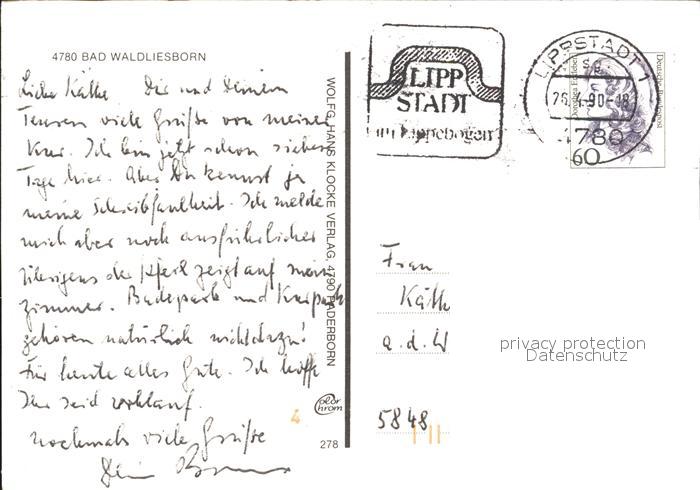 4780 BAD WALDLIESBORN
Liebe Käthe Dir und Deinem
Teuren viele Grüße von meiner
Kur. Ich bin jetzt schon sieben
Tage hier. Aber Du kennst ja
meine Schreibfaulheit. Ich melde
mich aber noch ausführlicher
Übrigens der Pfeil zeigt auf mein
Zimmer. Badepark und Kurpark
gehören natürlich nicht dazu!
Für heute alles Gute. Ich hoffe
Ihr seid wohlauf.
nochmals viele Grüße
Dein
WOLFG. HANS KLOCKE VERLAG, 4790 PADERBORN
color chrom
278
4
LIPP
STADT
im Lippebogen
LIPPSTADT 1
sg
26.4.90-18
4780
Deutsche Bundespost
60
Frau
Käthe
a.d.W
5848
privacy protection
Datenschutz